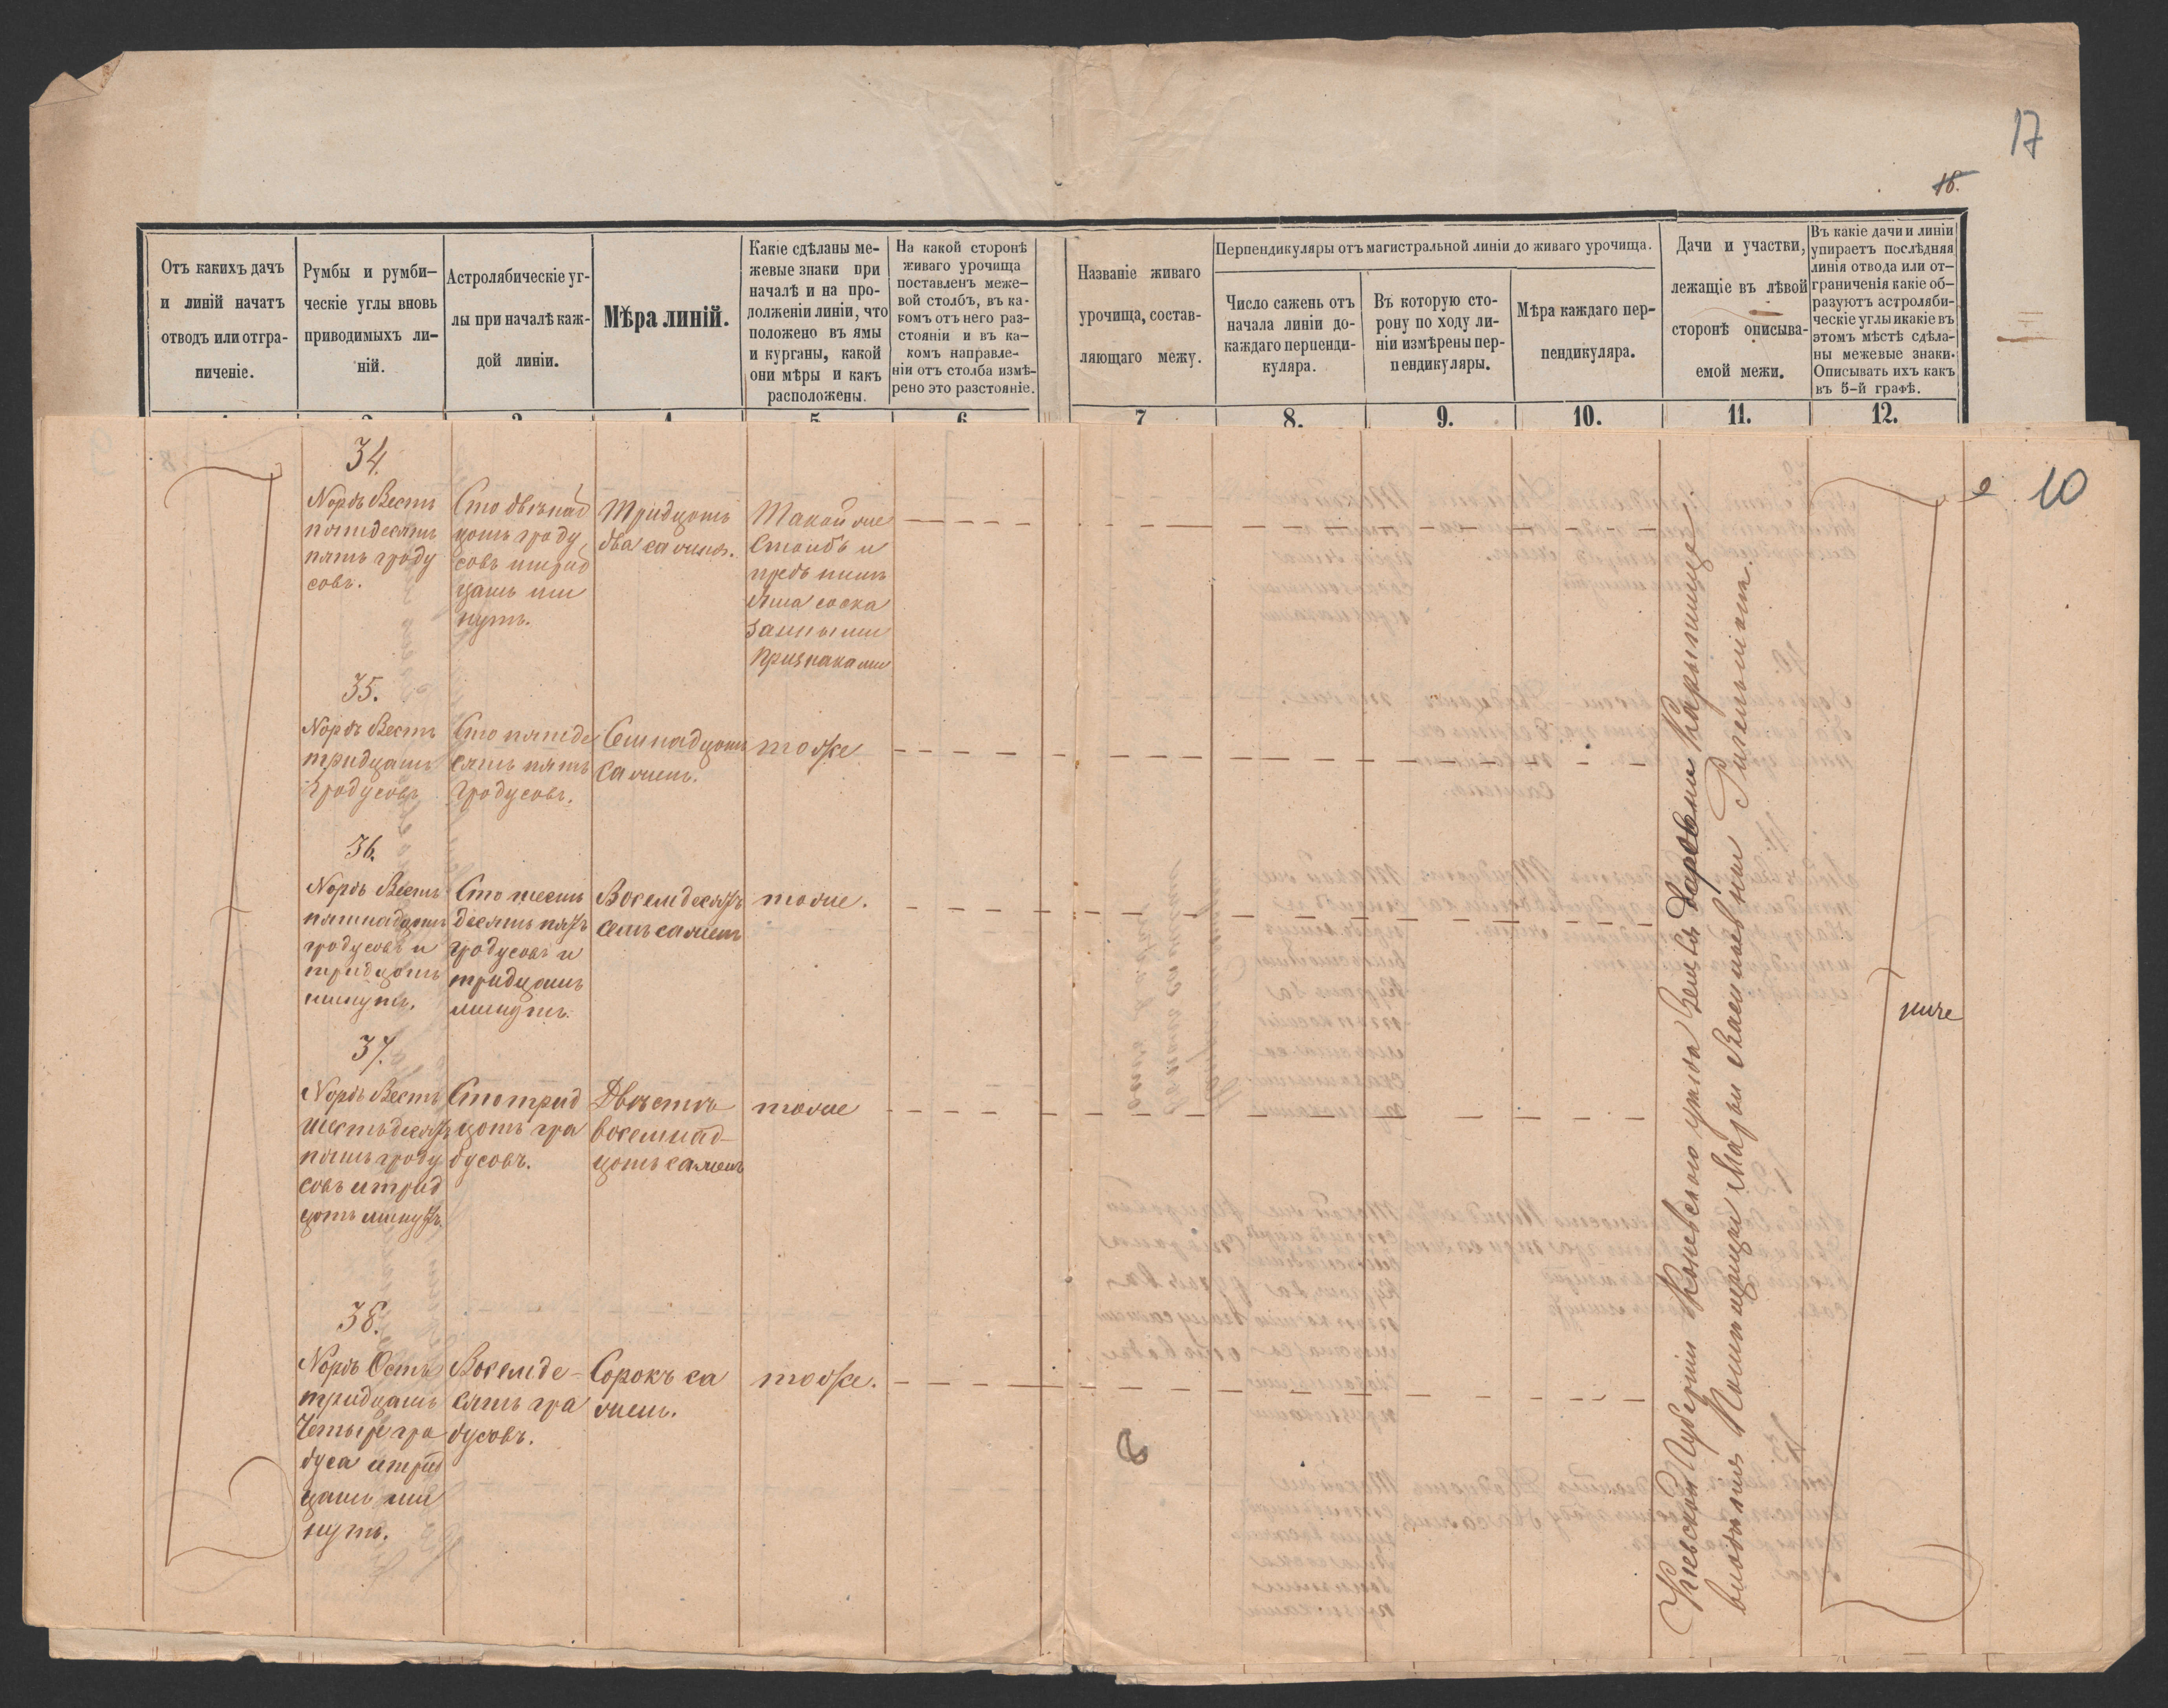 17
18.
Отъ какихъ дачъ
и линій начатъ
отводъ или отгра-
ниченіе.
Румбы и румби-
ческіе углы вновь
приводимыхъ ли-
ній.
Астролябическіе уг-
лы при началѣ каж-
дой линіи.
Мѣра линій.
Какіе сдѣланы ме-
жевые знаки при
началѣ и на про-
долженіи линіи, что
положено въ ямы
и курганы, какой
они мѣры и какъ
расположены.
На какой сторонѣ
живаго урочища
поставленъ меже-
вой столбъ, въ ка-
комъ отъ него раз-
стояніи и въ ка-
комъ направле-
ніи отъ столба измѣ-
рено это разстояніе.
Названіе живаго
урочища, состав-
ляющаго межу.
Перпендикуляры отъ магистральной линіи до живаго урочища.
Число сажень отъ
начала линіи до-
каждаго перпенди-
куляра.
Въ которую сто-
рону по ходу ли-
ніи измѣрены пер-
пендикуляры.
Мѣра каждаго пер-
пендикуляра.
Дачи и участки,
лежащіе въ лѣвой
сторонѣ описыва-
емой межи.
Въ какіе дачи и линіи
упираетъ послѣдняя
линія отвода или от-
граниченія какіе об-
разуютъ астроляби-
ческіе углы икакіе въ
этомъ мѣстѣ сдѣла-
ны межевые знаки.
Описывать ихъ какъ
въ 5-й графѣ.
7
8.
9.
10.
11.
12.
10
34.
Нордъ Вестъ
пятдесятъ
пять граду
совъ.
Сто двѣнад
цать граду
совъ итрид
цать ми
нутъ.
Тридцать
два сажня.
Такой же
Столбъ и
предъ нимъ
Яма соска
занными
признаками
35.
Нордъ Вестъ
тридцать
градусовъ
Сто пятьде
сять пять
градусовъ.
Семнадцать
Сажень.
тоже
36.
Нордъ Вестъ
пятнадцать
градусовъ и
тридцать
минутъ.
Сто шесть
десятъ пять
градусовъ и
тридцать
минутъ.
Восемдесятъ
семь сажень
тоже.
37.
Нордъ Вестъ
шестьдесятъ
пять граду
совъ итрид
цать минутъ.
Сто трид
цать гра
дусовъ.
Двѣсти
восемнад-
цать сажень
тоже
38.
Нордъ Остъ
тридцать
Четыре гра
дуса итрид
цать ми
нутъ.
Восемде-
сятъ гра
дусовъ.
Сорокъ са
жень.
тоже.
Кіевской Губерніи Каневскаго уѣзда Земля деревни Карапишъ
владѣнія Помѣщицы Маріи Васильевны